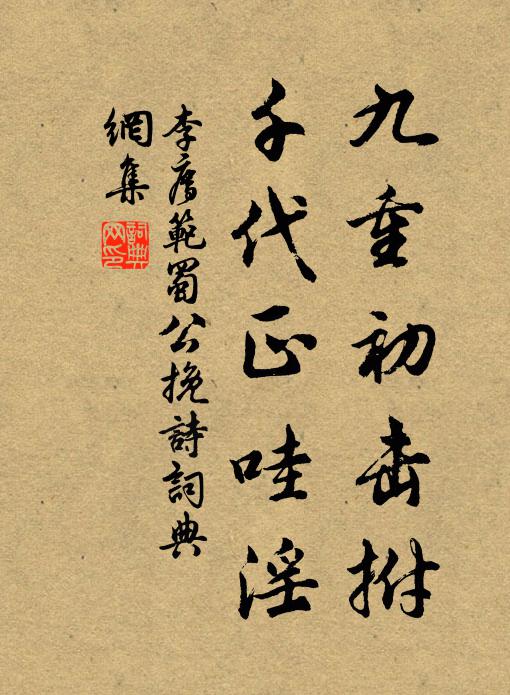 九重初击拊
千代正哇淫
李廌範蜀公挽詩詞典
網集
詞典网印